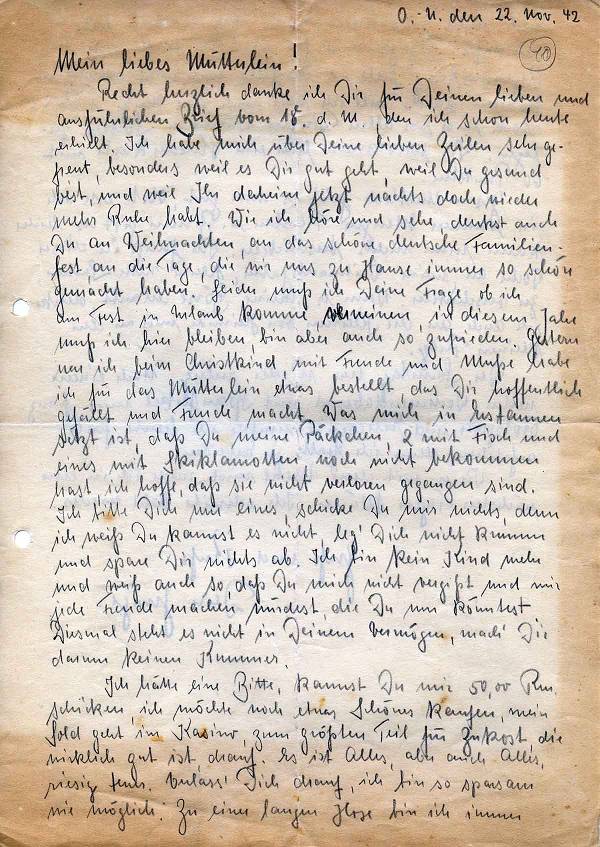 O.-U. den 22. Nov. 42
40
Mein liebes Mütterlein!
Recht herzlich danke ich Dir für Deinen lieben und
ausführlichen Brief vom 18. d. M., den ich schon heute
erhielt. Ich habe mich über Deine lieben Zeilen sehr ge-
freut, besonders weil es Dir gut geht, weil Du gesund
bist, und weil Ihr daheim jetzt nachts doch wieder
mehr Ruhe habt. Wie ich höre und sehe, denkst auch
Du an Weihnachten, an das schöne deutsche Familien-
fest, an die Tage, die wir uns zu Hause immer so schön
gemacht haben. Leider muß ich Deine Frage, ob ich
am Fest in Urlaub komme, verneinen, in diesem Jahr
muß ich hier bleiben, bin aber auch so zufrieden. Gestern
war ich beim Christkind, mit Freude und Muße habe
ich für das Mütterlein etwas bestellt, das Dir hoffentlich
gefällt und Freude macht. Was mich in Erstaunen
setzt ist, daß Du meine Päckchen, 2 mit Fisch und
eines mit Skiklamotten, noch nicht bekommen
hast, ich hoffe, daß sie nicht verloren gegangen sind.
Ich bitte Dich nur eines, schicke Du mir nichts, denn
ich weiß Du kannst es nicht, leg' Dich nicht krumm
und spare Dir nichts ab. Ich bin kein Kind mehr
und weiß auch so, daß Du mich nicht vergißt und mir
jede Freude machen würdest, die Du nur könntest
Diesmal steht es nicht in Deinem Vermögen, mach' Dir
darum keinen Kummer.
Ich hätte eine Bitte, kannst Du mir 50,00 Rm.
schicken, ich möchte noch etwas Schönes kaufen, mein
Sold geht im Kasino, zum größten Teil für Zukost, die
wirklich gut ist, drauf. Es ist Alles, aber auch Alles,
riesig teuer. Verlass' Dich drauf, ich bin so sparsam
wie möglich. Zu einer langen Hose bin ich immer